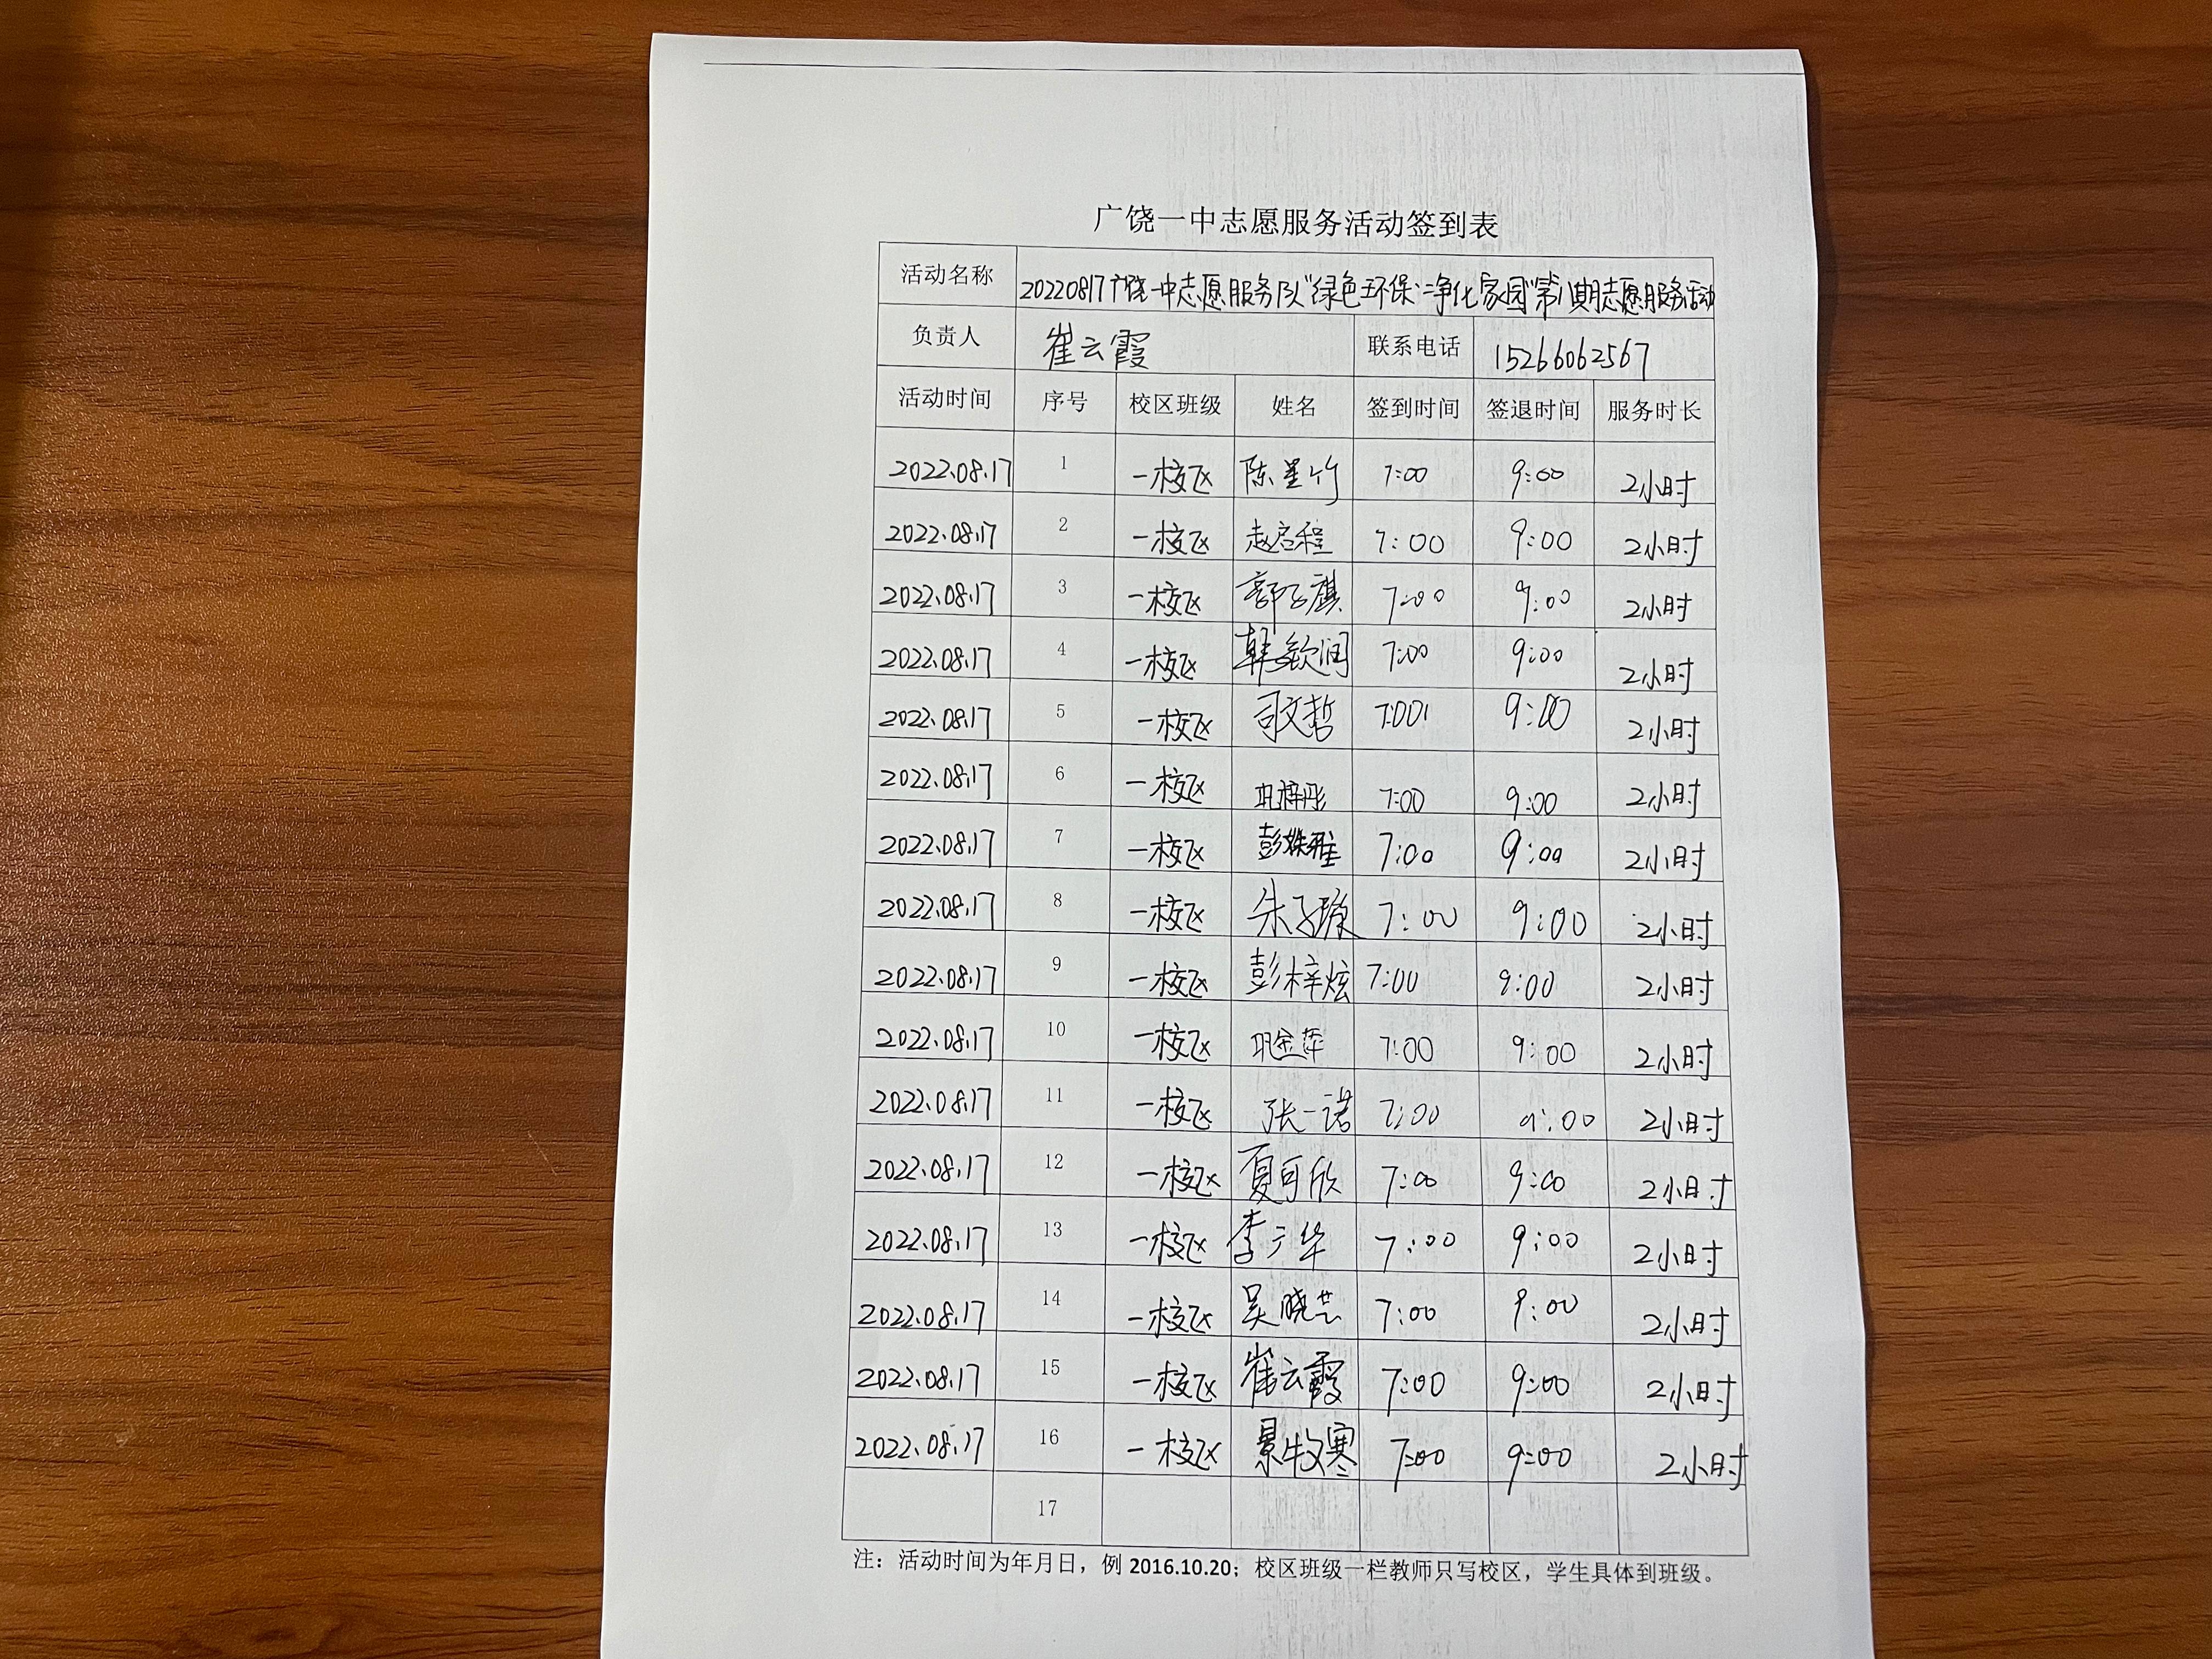 广饶一中志愿服务活动签到表
活动名称 20220817广饶一中志愿服务队"绿色环保·净化家园"第八期志愿服务活动
负责人 崔云霞 联系电话 15266062567
活动时间 序号 校区班级 姓名 签到时间 签退时间 服务时长
2022.08.17 1 一校区 陈星竹 7:00 9:00 2小时
2022.08.17 2 一校区 赵启程 7:00 9:00 2小时
2022.08.17 3 一校区 郭子祺 7:00 9:00 2小时
2022.08.17 4 一校区 韩欽润 7:00 9:00 2小时
2022.08.17 5 一校区 司文哲 7:00 9:00 2小时
2022.08.17 6 一校区 巩梓彤 7:00 9:00 2小时
2022.08.17 7 一校区 彭姝雅 7:00 9:00 2小时
2022.08.17 8 一校区 朱子璇 7:00 9:00 2小时
2022.08.17 9 一校区 彭梓炫 7:00 9:00 2小时
2022.08.17 10 一校区 巩金萍 7:00 9:00 2小时
2022.08.17 11 一校区 张一诺 7:00 9:00 2小时
2022.08.17 12 一校区 夏可欣 7:00 9:00 2小时
2022.08.17 13 一校区 李广华 7:00 9:00 2小时
2022.08.17 14 一校区 吴晓芸 7:00 9:00 2小时
2022.08.17 15 一校区 崔云霞 7:00 9:00 2小时
2022.08.17 16 一校区 景牧寒 7:00 9:00 2小时
17
注：活动时间为年月日，例 2016.10.20；校区班级一栏教师只写校区，学生具体到班级。